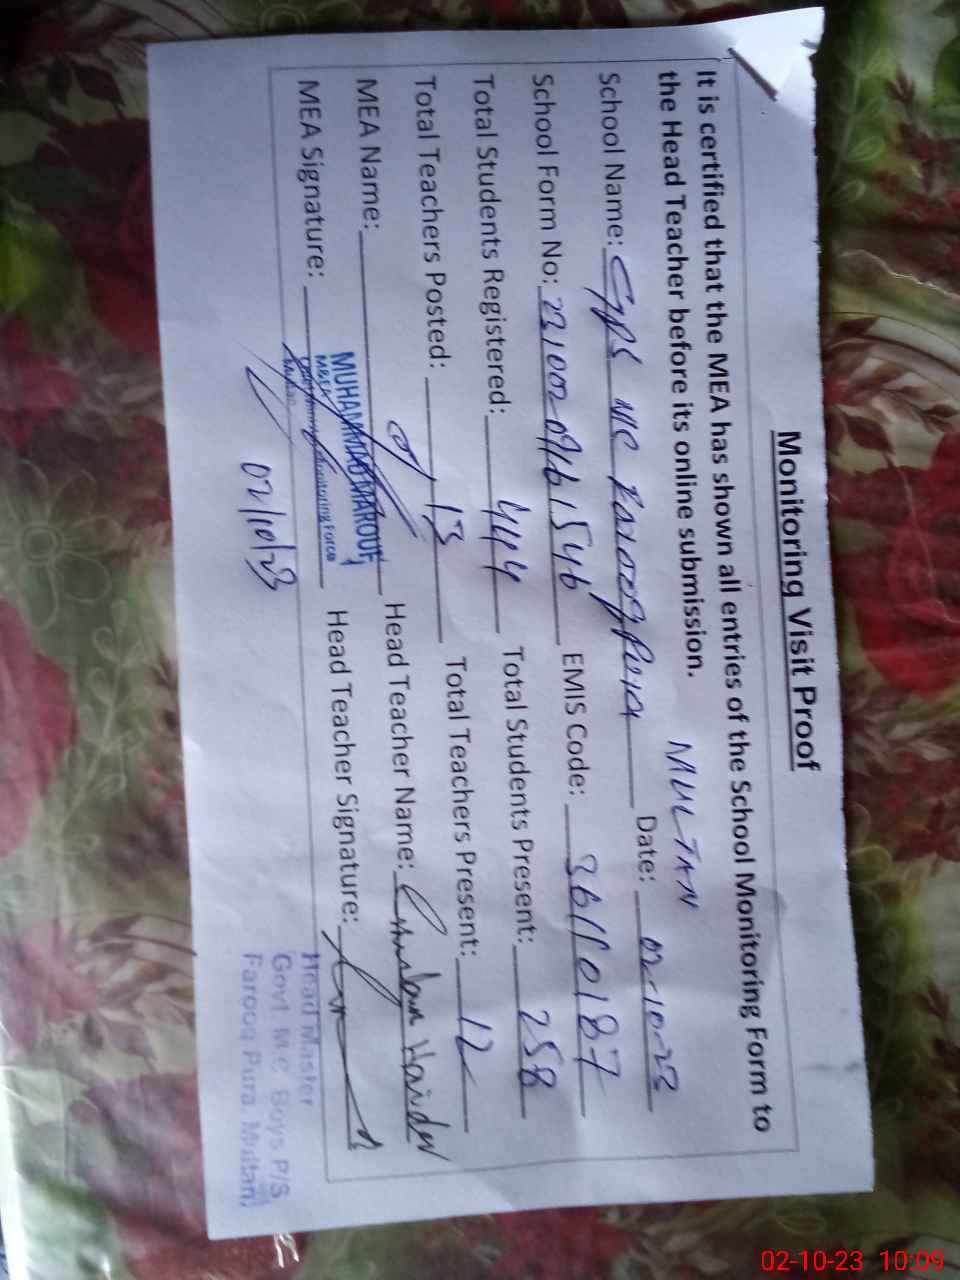 Monitoring Visit Proof
It is certified that the MEA has shown all entries of the School Monitoring Form to
the Head Teacher before its online submission. MULTAN
School Name: GPS MC Farooq Pura Date: 02-10-23
School Form No: EMIS Code: 36110187
Total Students Registered: 444 Total Students Present: 258
Total Teachers Posted: 13 Total Teachers Present: 12
MEA Name: MUHAMMAD MAROUF Head Teacher Name: Haider
M&EA
Monitoring Force
Multan
MEA Signature: Head Teacher Signature:
02/10/23
Head Master
Govt. M.C. Boys P/S
Farooq Pura, Multan
02-10-23 10:09